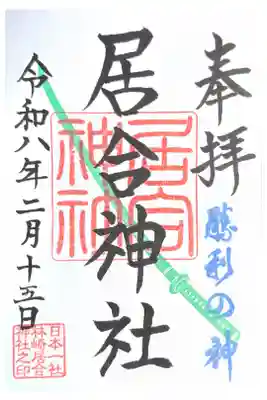 奉拝
勝利の神
居合神社
居合
神社
令和八年二月十五日
日本一社
林崎居合
神社之印